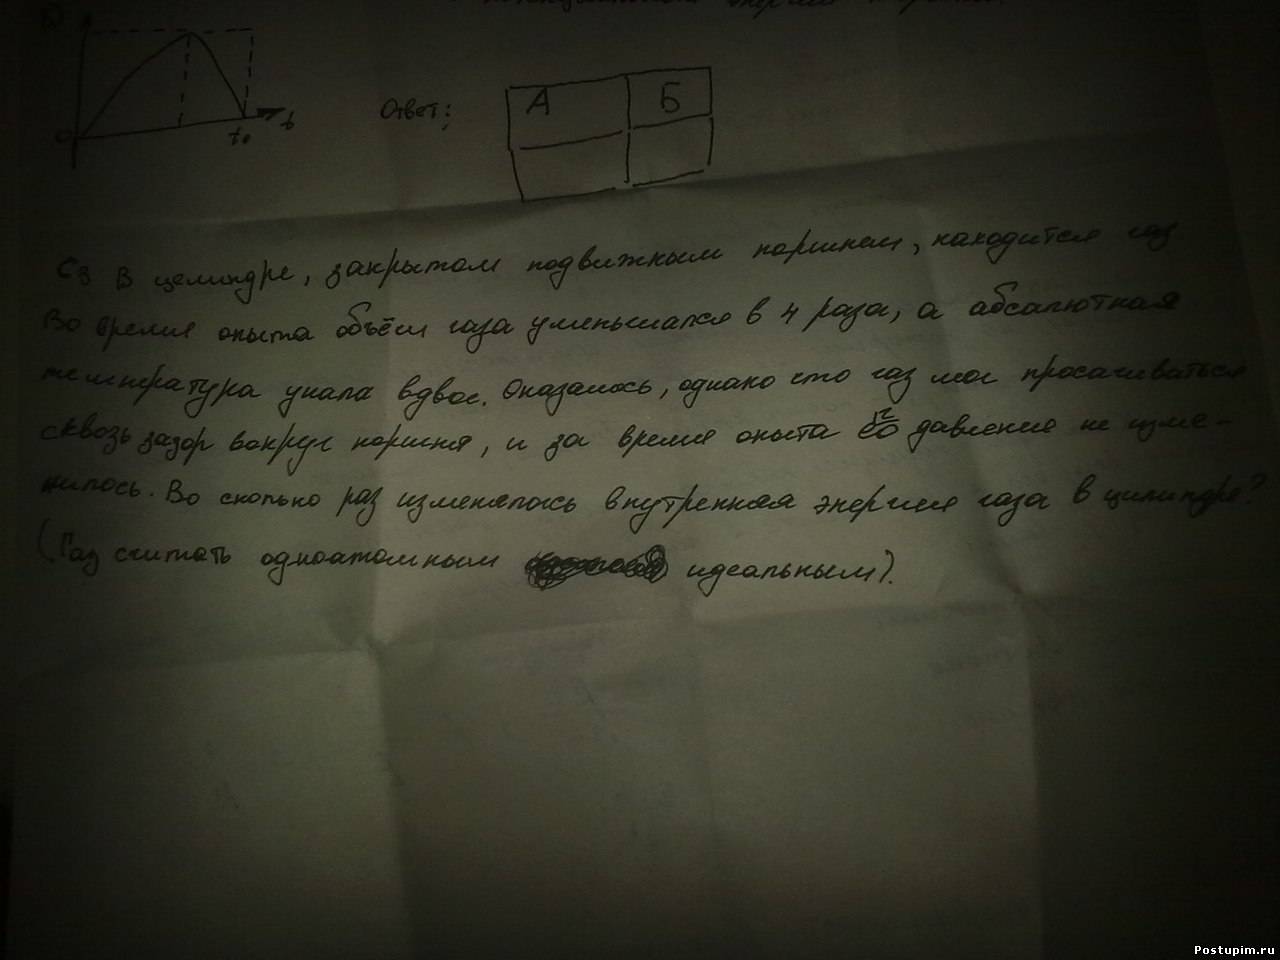 энергии
0
t₀
t
Ответ:
А
Б
С3 В целиндре, закрытом подвижным поршнем, находится газ
Во время опыта объём газа уменьшился в 4 раза, а абсалютная
температура упала вдвое. Оказалось, однако что газ мог просачиваться
сквозь зазор вокруг поршня, и за время опыта его давление не изме-
нилось. Во сколько раз изменялось внутренняя энергия газа в цилиндре?
(Газ считать одноатомным идеальным).
Postupim.ru